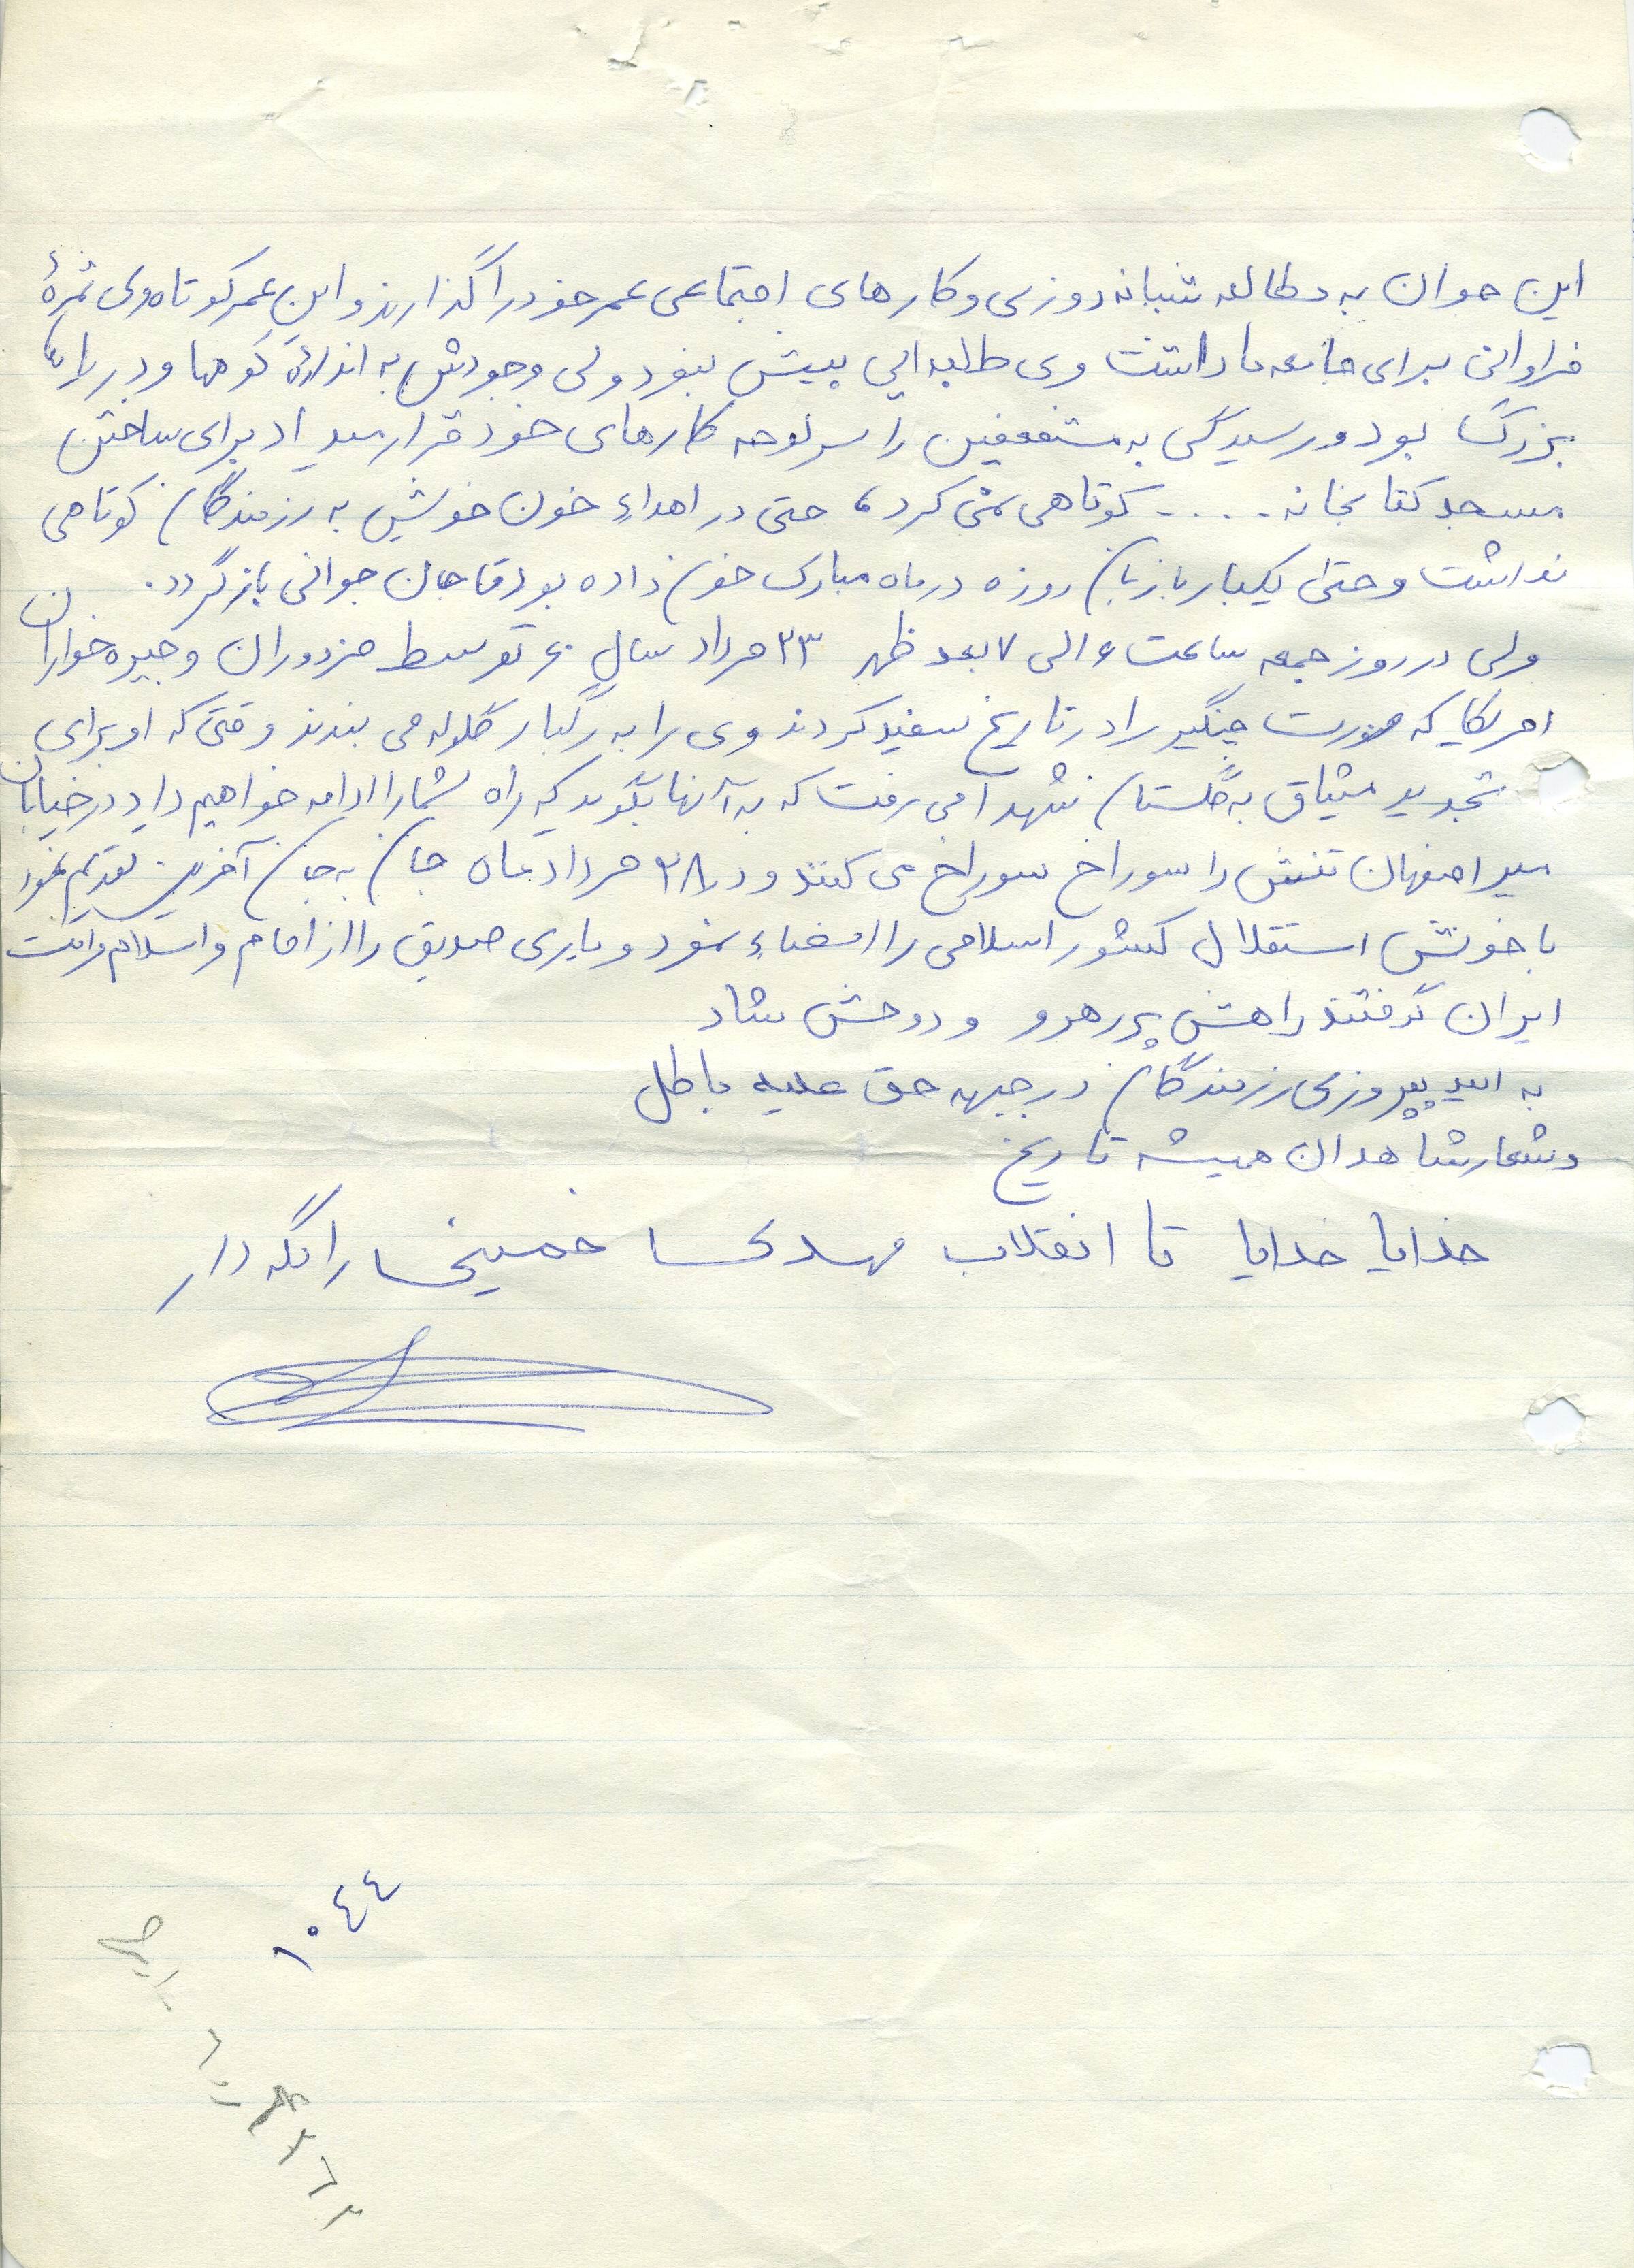 این جوان به مطالعه شبانه روزی و کارهای اجتماعی عمر خود را گذارند و این عمر کوتاه وی ثمرهٔ
فراوانی برای جامعه ما داشت وی طلبه ایی بیش نبود ولی وجودش به اندازهٔ کوهها و دریای
بزرگ بود و رسیدگی به مستضعفین را سرلوحه کارهای خود قرار میداد برای ساختن
مسجد کتابخانه .... کوتاهی نمی کرد، حتی در اهداء خون خویش به رزمندگان کوتاهی
نداشت و حتی یکبار با زبان روزه در ماه مبارک خون داده بود تا جان جوانی بازگردد.
ولی در روز جمعه ساعت ۶ الی ۷ بعد ظهر ۲۳ مرداد سال ۶۰ توسط مزدوران و جیره خواران
امریکا که صورت چنگیز را در تاریخ سفید کردند وی را به رگبار گلوله می بندند وقتی که او برای
تجدید میثاق به گلستان شهدا می رفت که به آنها بگوید که راه شما را ادامه خواهیم داد در خیابان
میر اصفهان تنش را سوراخ سوراخ می کنند و در ۲۸ مرداد ماه جان به جان آفرین تقدیم نمود
با خونش استقلال کشور اسلامی را امضاء نمود و یاری صدیق را از امام و اسلام و امت
ایران گرفتند راهش پر رهرو و روحش شاد
به امید پیروزی رزمندگان در جبهه حق علیه باطل
و شعار شاهدان همیشه تاریخ
خدایا خدایا تا انقلاب مهدی خمینی را نگه دار
۱۰۴۴